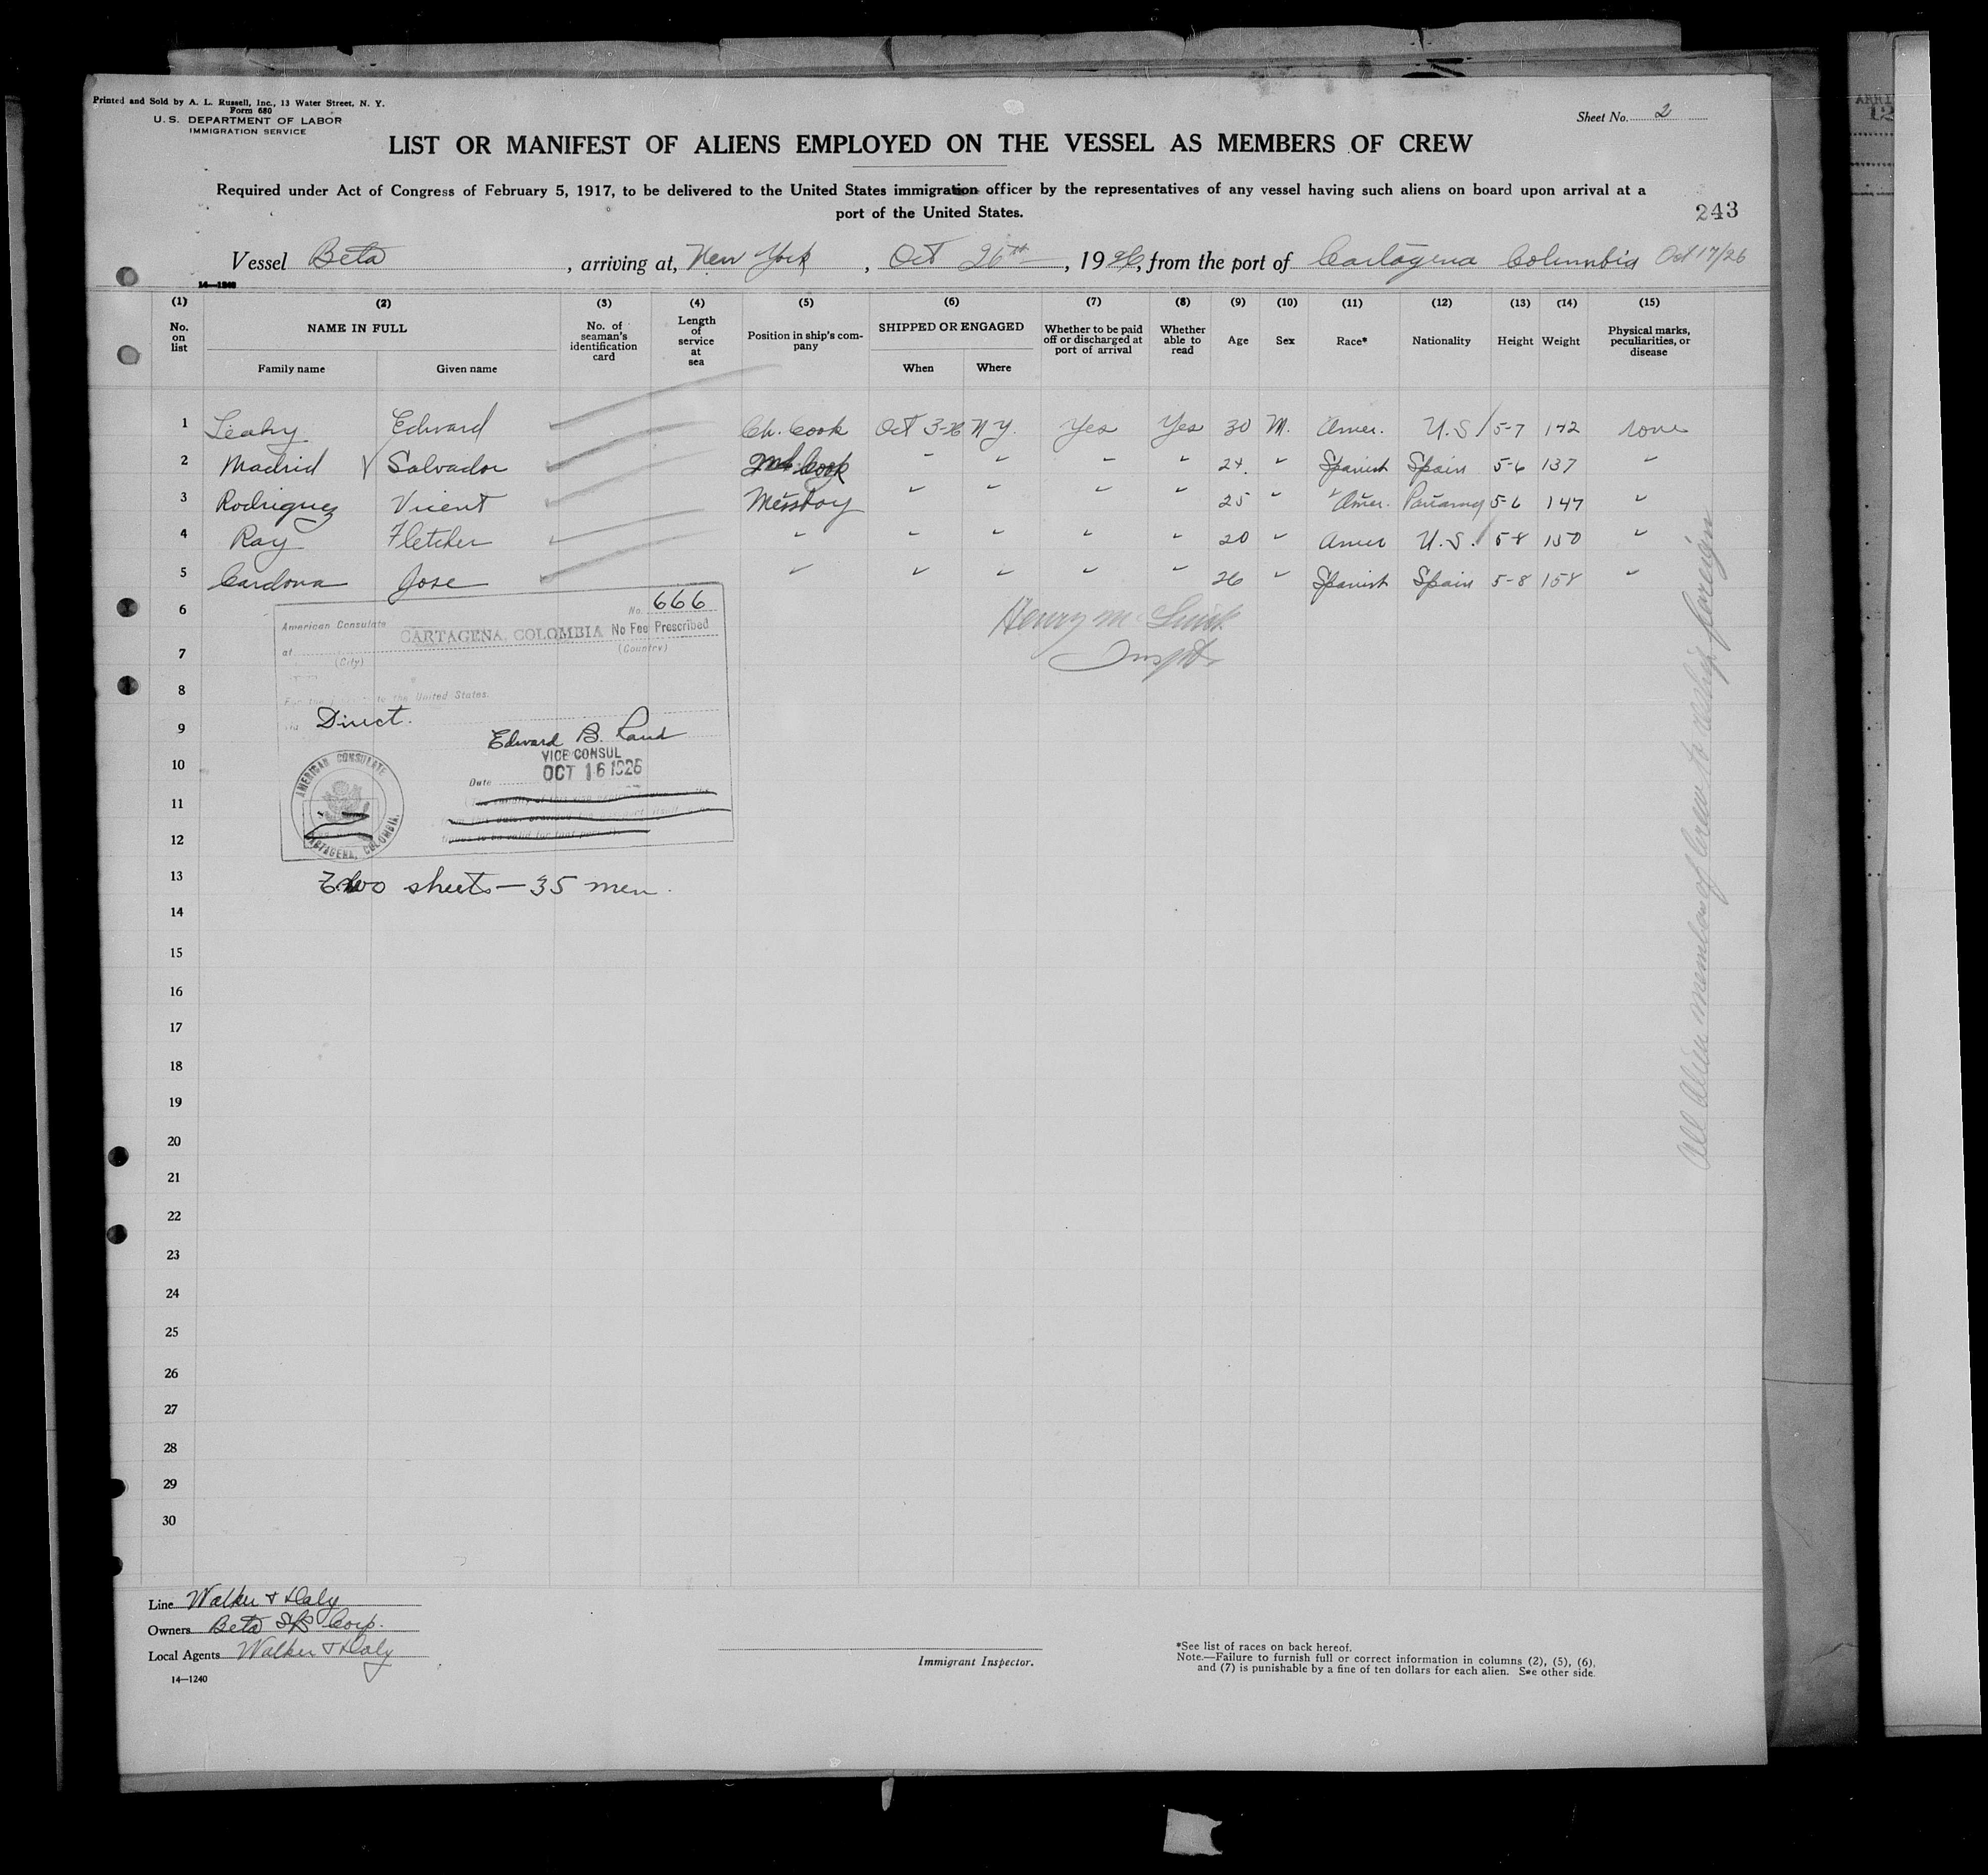 Printed and Sold by A. L. Russell, Inc., 13 Water Street, N. Y.
Form 680
U. S. DEPARTMENT OF LABOR
IMMIGRATION SERVICE
Sheet No. 2
LIST OR MANIFEST OF ALIENS EMPLOYED ON THE VESSEL AS MEMBERS OF CREW
Required under Act of Congress of February 5, 1917, to be delivered to the United States immigration officer by the representatives of any vessel having such aliens on board upon arrival at a
port of the United States.
243
Vessel Beta, arriving at, New York, Oct 26th, 1926, from the port of Cartagena Columbia Oct 17/26
14—1240
(1) (2) (3) (4) (5) (6) (7) (8) (9) (10) (11) (12) (13) (14) (15)
No. on list NAME IN FULL Family name Given name No. of seaman's identification card Length of service at sea Position in ship's company SHIPPED OR ENGAGED When Where Whether to be paid off or discharged at port of arrival Whether able to read Age Sex Race* Nationality Height Weight Physical marks, peculiarities, or disease
1 Leahy Edward Ch. Cook Oct 3-26 N.Y. Yes Yes 30 M. Amer. U.S. 5-7 142 none
2 Madrid Salvador 2nd Cook " " " " 24 " Spanish Spain 5-6 137 "
3 Rodriguez Vicent Messboy " " " " 25 " Amer. Panama 5-6 147 "
4 Ray Fletcher " " " " " 20 " Amer U.S. 5-8 150 "
5 Cardona Jose " " " " " 26 " Spanish Spain 5-8 158 "
6
7
8
9
10
11
12
13
14
15
16
17
18
19
20
21
22
23
24
25
26
27
28
29
30
No. 666
American Consulate
CARTAGENA, COLOMBIA No Fee Prescribed
at
(City) (Country)
For the to the United States.
via Direct.
Edward B. Rand
VICE CONSUL
Date OCT 16 1926
AMERICAN CONSULATE
CARTAGENA, COLOMBIA.
Two sheets — 35 men.
Henry Mc
Inspt.
All Alien members of Crew to reship foreign
Line Walker & Daly
Owners Beta S/S Corp.
Local Agents Walker & Daly
14—1240
Immigrant Inspector.
*See list of races on back hereof.
Note.—Failure to furnish full or correct information in columns (2), (5), (6),
and (7) is punishable by a fine of ten dollars for each alien. See other side.